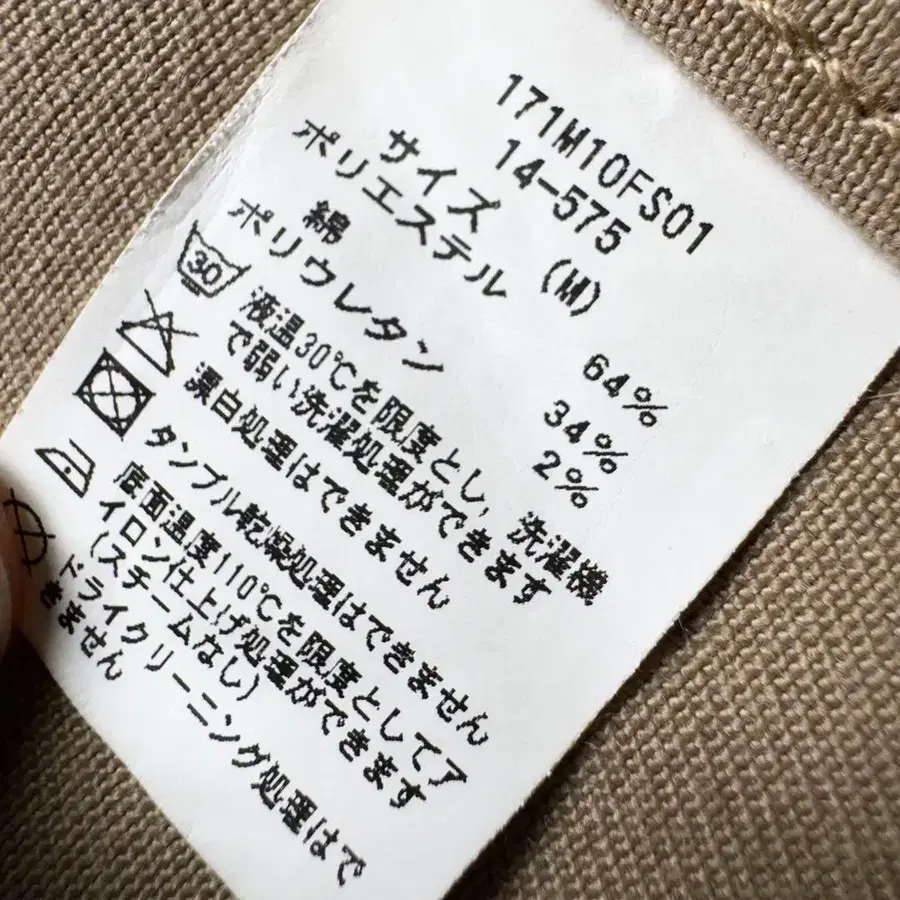 171M10FS01
14-575
サイズ (M)
ポリエステル 64%
綿 34%
ポリウレタン 2%
30
液温30℃を限度とし, 洗濯機
で弱い洗濯処理ができます
漂白処理はできません
タンブル乾燥処理はできません
底面温度110℃を限度としてア
イロン仕上げ処理ができます
(スチームなし)
ドライクリーニング処理はで
きません